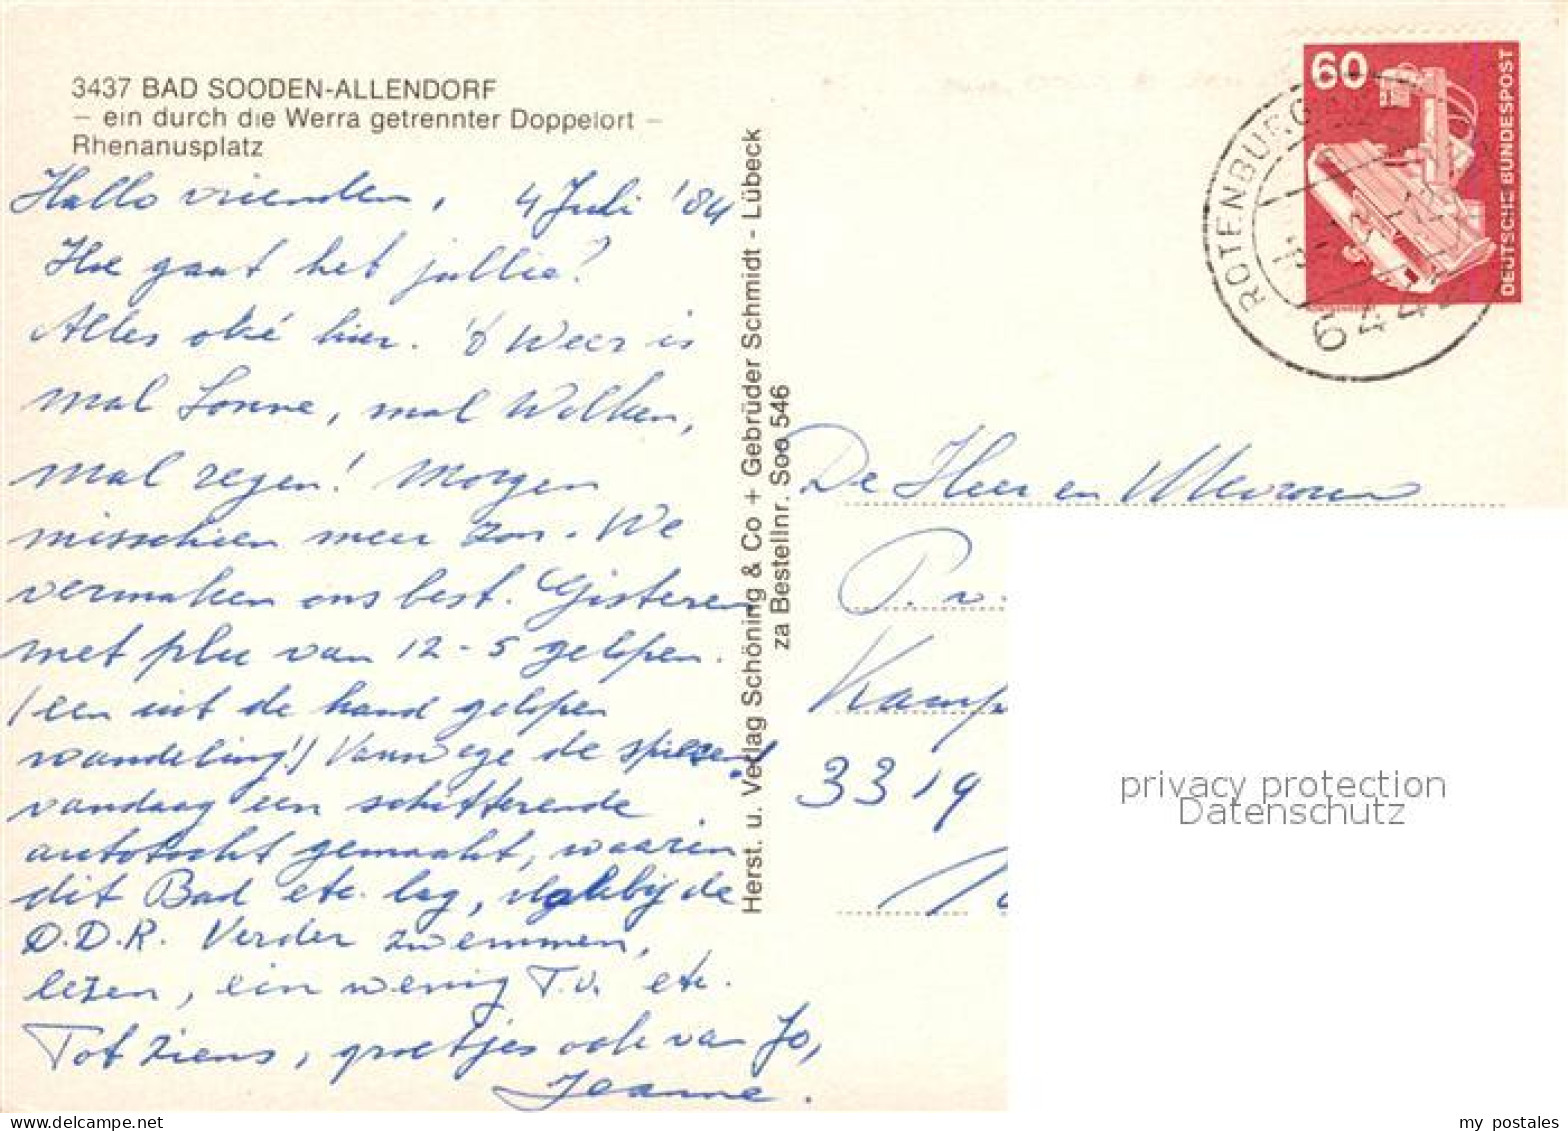 3437 BAD SOODEN-ALLENDORF
– ein durch die Werra getrennter Doppelort –
Rhenanusplatz
Hallo vrienden, 4 Juli '84
Hoe gaat het jullie?
Alles oké hier. 't Weer is
mal Sonne, mal Wolken,
mal regen! Morgen
misschien meer zon. We
vermaken ons best. Gisteren
met plu van 12-5 gelopen.
(een uit de hand gelopen
wandeling!) Vanwege de spieren
vandaag een schitterende
autotocht gemaakt, waarin
dit Bad etc. lag, vlak bij de
D.D.R. Verder zwemmen,
lezen, ein wenig T.V. etc.
Tot ziens, groetjes ook van Jo,
Jeanne.
Herst. u. Verlag Schöning & Co + Gebrüder Schmidt - Lübeck
za Bestellnr. Soo 546
60
DEUTSCHE BUNDESPOST
ROTENBURG
644
De Heer en Mevrouw
P. v.
Kamp
3319
privacy protection
Datenschutz
my postales